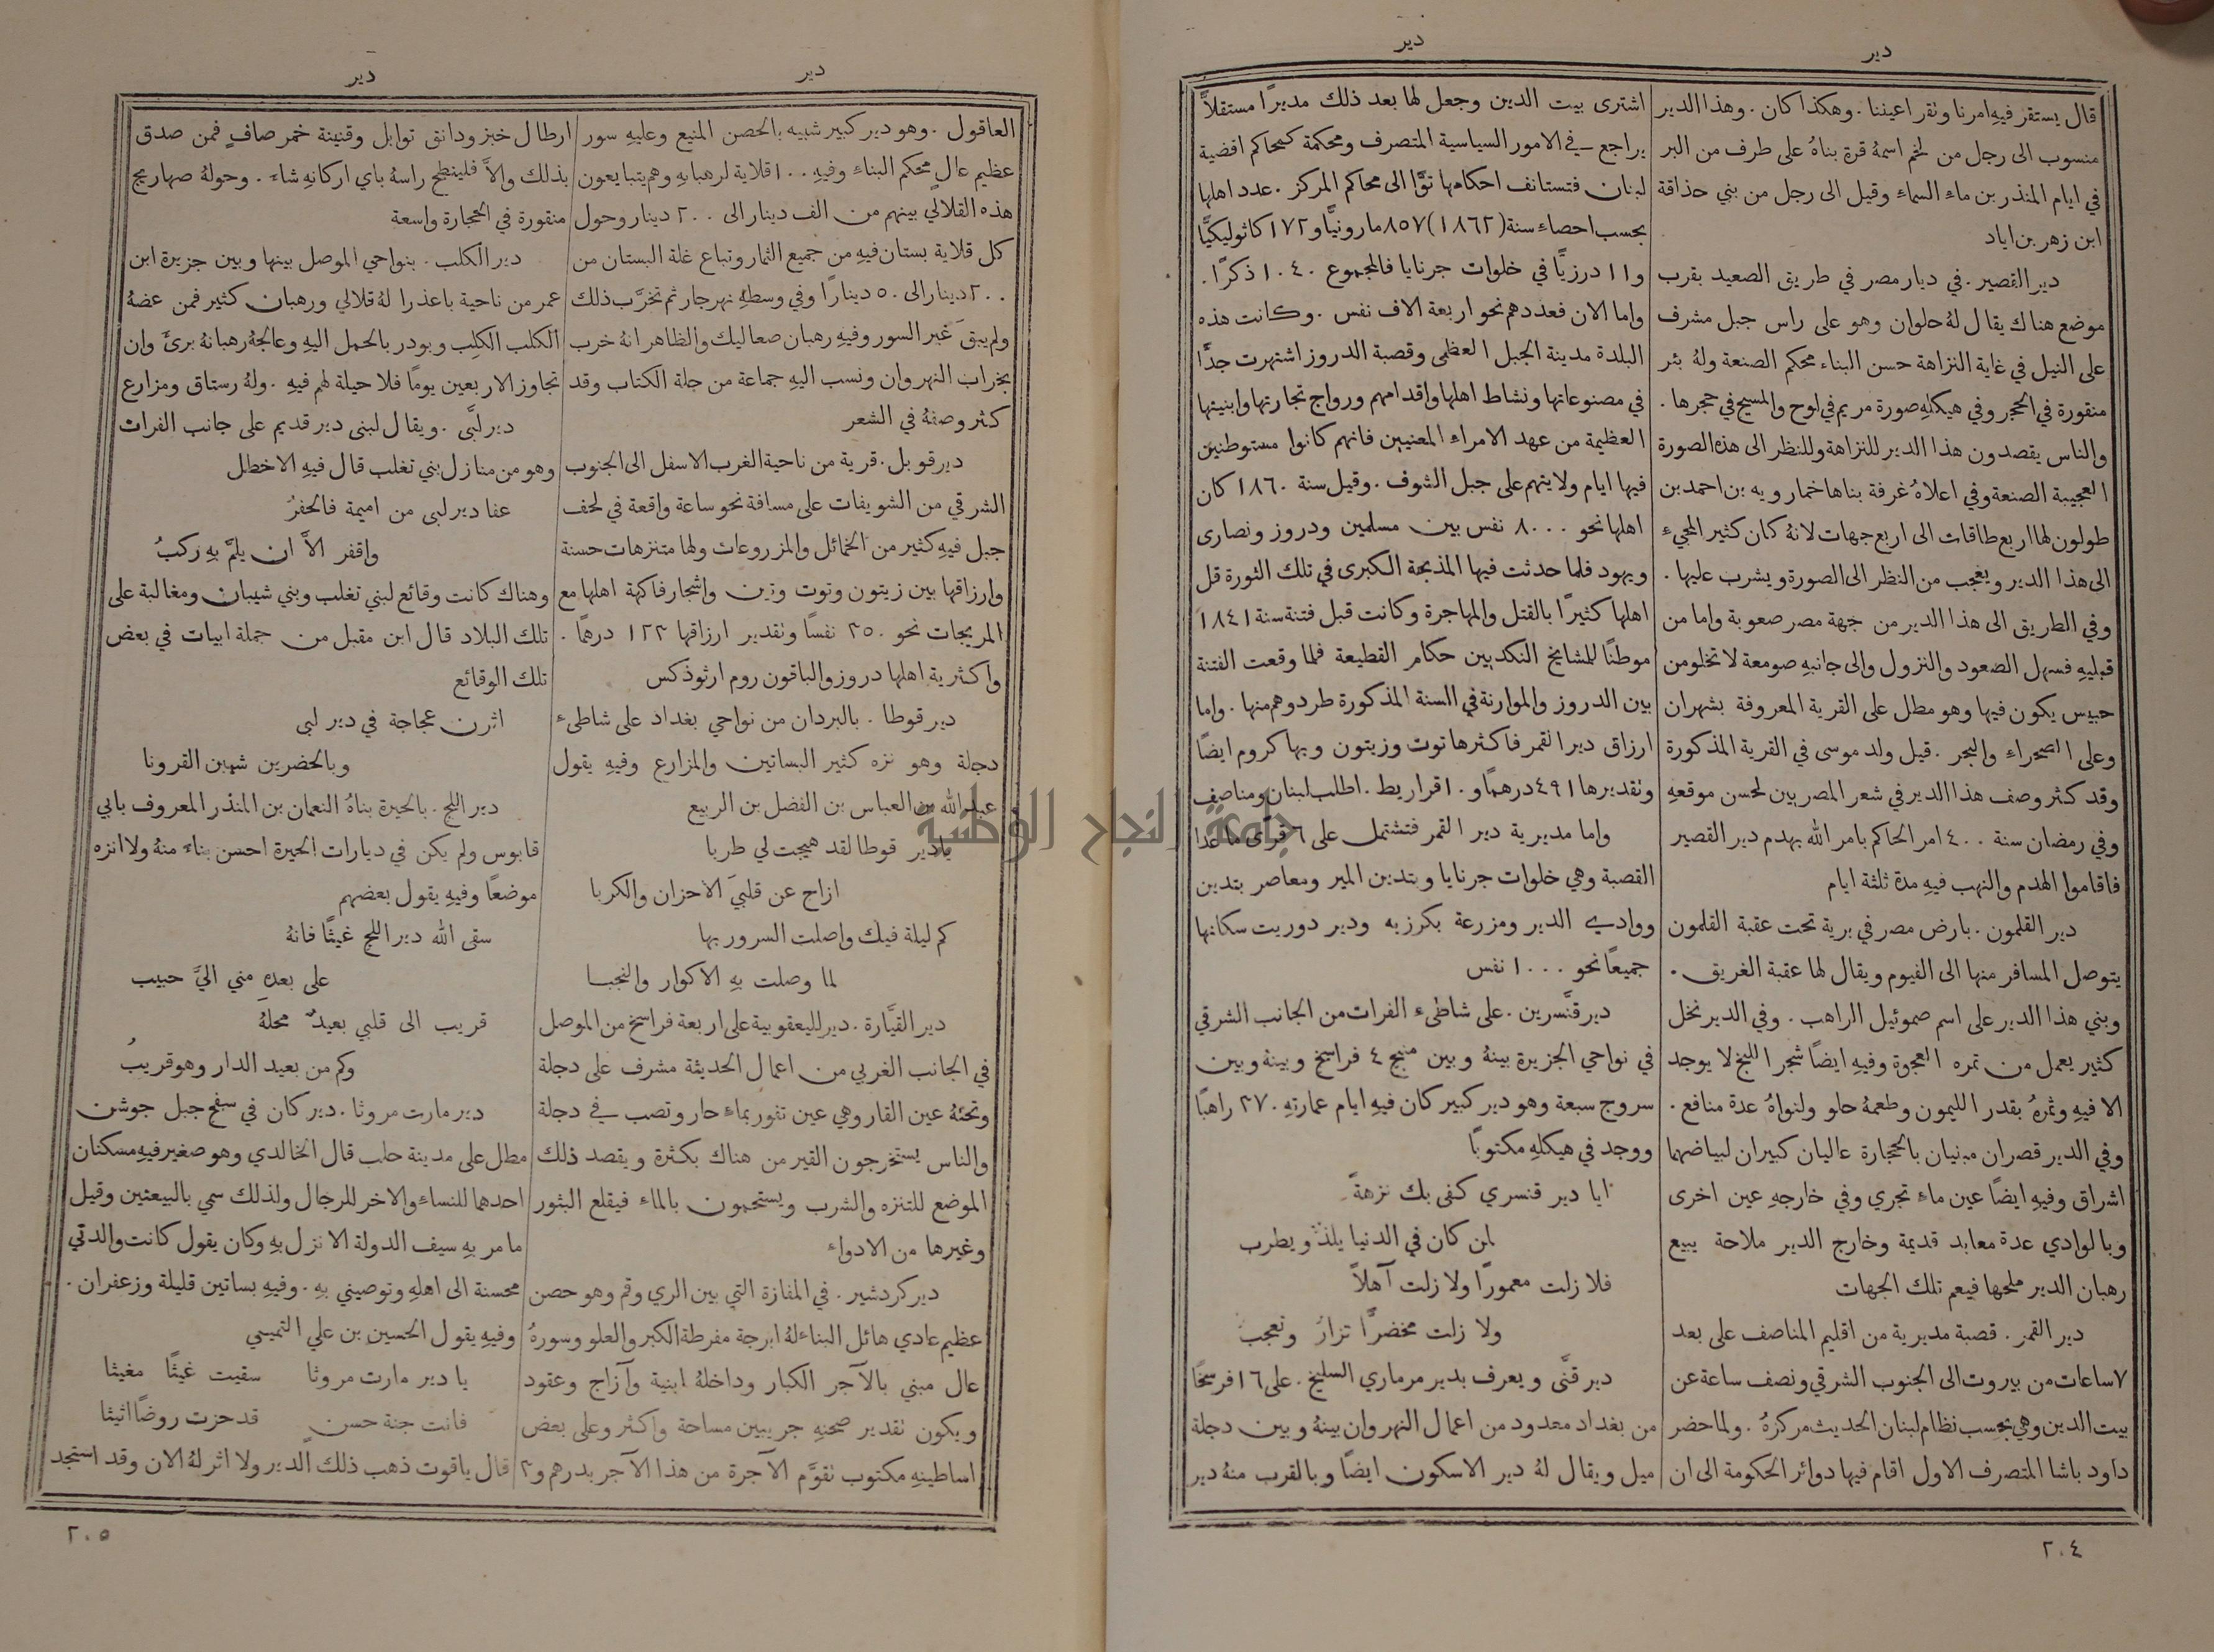 دير
دير
قال يستقر فيهِ امرنا ونقر اعيننا . وهكذا كان . وهذا الدير
منسوب الى رجل من لخم اسمهُ قرة بناهُ على طرف من البر
في ايام المنذر بن ماء السماء وقيل الى رجل من بني حذاقة
ابن زهر بن اياد
دير القصير . في ديار مصر في طريق الصعيد بقرب
موضع هناك يقال لهُ حلوان وهو على راس جبل مشرف
على النيل في غاية النزاهة حسن البناء محكم الصنعة ولهُ بئر
منقورة في الحجر وفي هيكلهِ صورة مريم في لوح والمسيح في حجرها .
والناس يقصدون هذا الدير للنزاهة وللنظر الى هذه الصورة
العجيبة الصنعة وفي اعلاهُ غرفة بناها خمارويه بن احمد بن
طولون لها اربع طاقات الى اربع جهات لانهُ كان كثير المجيء
الى هذا الدير ويعجب من النظر الى الصورة ويشرب عليها .
وفي الطريق الى هذا الدير من جهة مصر صعوبة واما من
قبليهِ فسهل الصعود والنزول والى جانبهِ صومعة لا تخلو من
حبيس يكون فيها وهو مطل على القرية المعروفة بشهران
وعلى الصحراء والبحر . قيل ولد موسى في القرية المذكورة
وقد كثر وصف هذا الدير في شعر المصريين لحسن موقعهِ
وفي رمضان سنة ٤٠٠ امر الحاكم بامر الله بهدم دير القصير
فاقاموا الهدم والنهب فيهِ مدة ثلثة ايام
دير القلمون . بارض مصر في برية تحت عقبة القلمون
يتوصل المسافر منها الى الفيوم ويقال لها عقبة الغريق .
وبني هذا الدير على اسم صموئيل الراهب . وفي الدير نخل
كثير يعمل من تمره العجوة وفيهِ ايضًا شجر اللبخ لا يوجد
الا فيهِ وثمرهُ بقدر الليمون وطعمهُ حلو ولنواهُ عدة منافع .
وفي الدير قصران مبنيان بالحجارة عاليان كبيران لبياضهما
اشراق وفيهِ ايضًا عين ماء تجري وفي خارجهِ عين اخرى
وبالوادي عدة معابد قديمة وخارج الدير ملاحة يبيع
رهبان الدير ملحها فيعم تلك الجهات
دير القمر . قصبة مديرية من اقليم المناصف على بعد
٧ ساعات من بيروت الى الجنوب الشرقي ونصف ساعة عن
بيت الدين وهي بحسب نظام لبنان الحديث مركزهُ . ولما حضر
داود باشا المتصرف الاول اقام فيها دوائر الحكومة الى ان
اشترى بيت الدين وجعل لها بعد ذلك مديرًا مستقلاًّ
يراجع في الامور السياسية المتصرف ومحكمة كمحاكم اقضية
لبنان فتستانف احكامها توًّا الى محاكم المركز . عدد اهلها
بحسب احصاء سنة (١٨٦٢) ٨٥٧ مارونيًّا و١٧٢ كاثوليكيًّا
و١١ درزيًّا في خلوات جرنايا فالمجموع ١٠٤٠ ذكرًا .
واما الان فعددهم نحو اربعة الاف نفس . وكانت هذه
البلدة مدينة الجبل العظمى وقصبة الدروز اشتهرت جدًّا
في مصنوعاتها ونشاط اهلها واقدامهم ورواج تجارتها وابنيتها
العظيمة من عهد الامراء المعنيين فانهم كانوا مستوطنين
فيها ايام ولايتهم على جبل الشوف . وقبل سنة ١٨٦٠ كان
اهلها نحو ٨٠٠٠ نفس بين مسلمين ودروز ونصارى
ويهود فلما حدثت فيها المذبحة الكبرى في تلك الثورة قل
اهلها كثيرًا بالقتل والمهاجرة وكانت قبل فتنة سنة ١٨٤١
موطنًا للمشايخ النكديين حكام القطيعة فلما وقعت الفتنة
بين الدروز والموارنة في السنة المذكورة طردوهم منها . واما
ارزاق دير القمر فاكثرها توت وزيتون وبها كروم ايضًا
وتقديرها ٤٩١ درهمًا و١٠ قراريط . اطلب لبنان ومناصف
واما مديرية دير القمر فتشتمل على ٦ قرى ما عدا
القصبة وهي خلوات جرنايا وبتدين المير ومعاصر بتدين
ووادي الدير ومزرعة بكرزيه ودير دوريت سكانها
جميعًا نحو ١٠٠٠ نفس
دير قنَّسرين . على شاطىء الفرات من الجانب الشرقي
في نواحي الجزيرة بينهُ وبين منبج ٤ فراسخ وبينهُ وبين
سروج سبعة وهو دير كبير كان فيهِ ايام عمارتهِ ٢٧٠ راهبًا
ووجد في هيكلهِ مكتوبًا
ايا دير قنسري كفى بك نزهةً
لمن كان في الدنيا يلذ ويطرب
فلا زلت معمورًا ولا زلت آهلاً
ولا زلت مخضرًّا تزارُ وتعجبُ
دير قنَّى ويعرف بدير مرماري السليخ . على ١٦ فرسخًا
من بغداد معدود من اعمال النهروان بينهُ وبين دجلة
ميل ويقال لهُ دير الاسكون ايضًا وبالقرب منهُ دير
٢٠٤
دير
دير
العاقول . وهو دير كبير شبيه بالحصن المنيع وعليهِ سور
عظيم عالٍ محكم البناء وفيهِ ١٠٠ قلاية لرهبانهِ وهم يتبايعون
هذه القلالي بينهم من الف دينار الى ٢٠٠ دينار وحول
كل قلاية بستان فيهِ من جميع الثمار وتباع غلة البستان من
٢٠٠ دينار الى ٥٠ دينارًا وفي وسطهِ نهر جار ثم تخرَّب ذلك
ولم يبقَ غير السور وفيهِ رهبان صعاليك والظاهر انهُ خرب
بخراب النهروان ونسب اليهِ جماعة من جلة الكتاب وقد
كثر وصفهُ في الشعر
دير قوبل . قرية من ناحية الغرب الاسفل الى الجنوب
الشرقي من الشويفات على مسافة نحو ساعة واقعة في لحف
جبل فيهِ كثير من الخمائل والمزروعات ولها متنزهات حسنة
وارزاقها بين زيتون وتوت وتين واشجار فاكهة اهلها مع
المريجات نحو ٢٥٠ نفسًا وتقدير ارزاقها ١٢٢ درهمًا .
واكثرية اهلها دروز والباقون روم ارثوذكس
دير قوطا . بالبردان من نواحي بغداد على شاطىء
دجلة وهو نزه كثير البساتين والمزارع وفيهِ يقول
عبد الله بن العباس بن الفضل بن الربيع
يا دير قوطا لقد هيجت لي طربا
ازاح عن قلبيَ الاحزان والكربا
كم ليلة فيك واصلت السرور بها
لما وصلت بهِ الاكوار والنجبا
دير القيَّارة . دير لليعقوبية على اربعة فراسخ من الموصل
في الجانب الغربي من اعمال الحديثة مشرف على دجلة
وتحتهُ عين القار وهي عين تفور بماء حار وتصب في دجلة
والناس يستخرجون القير من هناك بكثرة ويقصد ذلك
الموضع للتنزه والشرب ويستحمون بالماء فيقلع البثور
وغيرها من الادواء
دير كردشير . في المفازة التي بين الري وقم وهو حصن
عظيم عادي هائل البناء لهُ ابرجة مفرطة الكبر والعلو وسورهُ
عال مبني بالآجر الكبار وداخلهُ ابنية وآزاج وعقود
ويكون تقدير صحنهِ جريبين مساحة واكثر وعلى بعض
اساطينهِ مكتوب تقوَّم الآجرة من هذا الآجر بدرهم و٢
ارطال خبز ودانق توابل وقنينة خمر صافٍ فمن صدق
بذلك والاَّ فلينطح راسهُ باي اركانهِ شاء . وحولهُ صهاريج
منقورة في الحجارة واسعة
دير الكلب . بنواحي الموصل بينها وبين جزيرة ابن
عمر من ناحية باعذرا لهُ قلالي ورهبان كثير فمن عضهُ
الكلب الكلِب وبودر بالحمل اليهِ وعالجهُ رهبانهُ برئَ وان
تجاوز الاربعين يومًا فلا حيلة لهم فيهِ . ولهُ رستاق ومزارع
دير لبَّى . ويقال لبنى دير قديم على جانب الفرات
وهو من منازل بني تغلب قال فيهِ الاخطل
عفا دير لبى من اميمة فالحفرُ
واقفر الاَّ ان يلمَّ بهِ ركبُ
وهناك كانت وقائع لبني تغلب وبني شيبان ومغالبة على
تلك البلاد قال ابن مقبل من جملة ابيات في بعض
تلك الوقائع
اثرن عجاجة في دير لبى
وبالحضرين شهبن القرونا
دير اللج . بالحيرة بناهُ النعمان بن المنذر المعروف بابي
قابوس ولم يكن في ديارات الحيرة احسن بناء منهُ ولا انزه
موضعًا وفيهِ يقول بعضهم
سقى الله دير اللج غيثًا فانهُ
على بعدهِ مني اليَّ حبيب
قريب الى قلبي بعيدٌ محلهُ
وكم من بعيد الدار وهو قريبُ
دير مارت مروثا . دير كان في سفح جبل جوشن
مطل على مدينة حلب قال الخالدي وهو صغير فيهِ مسكنان
احدهما للنساء والاخر للرجال ولذلك سمي بالبيعتين وقيل
ما مر بهِ سيف الدولة الا نزل بهِ وكان يقول كانت والدتي
محسنة الى اهلهِ وتوصيني بهِ . وفيهِ بساتين قليلة وزعفران .
وفيهِ يقول الحسين بن علي التميمي
يا دير مارت مروثا سقيت غيثًا مغيثا
فانت جنة حسنٍ قد حزت روضًا اثيثا
قال ياقوت ذهب ذلك الدير ولا اثر لهُ الان وقد استجد
٢٠٥
جامعة النجاح الوطنية